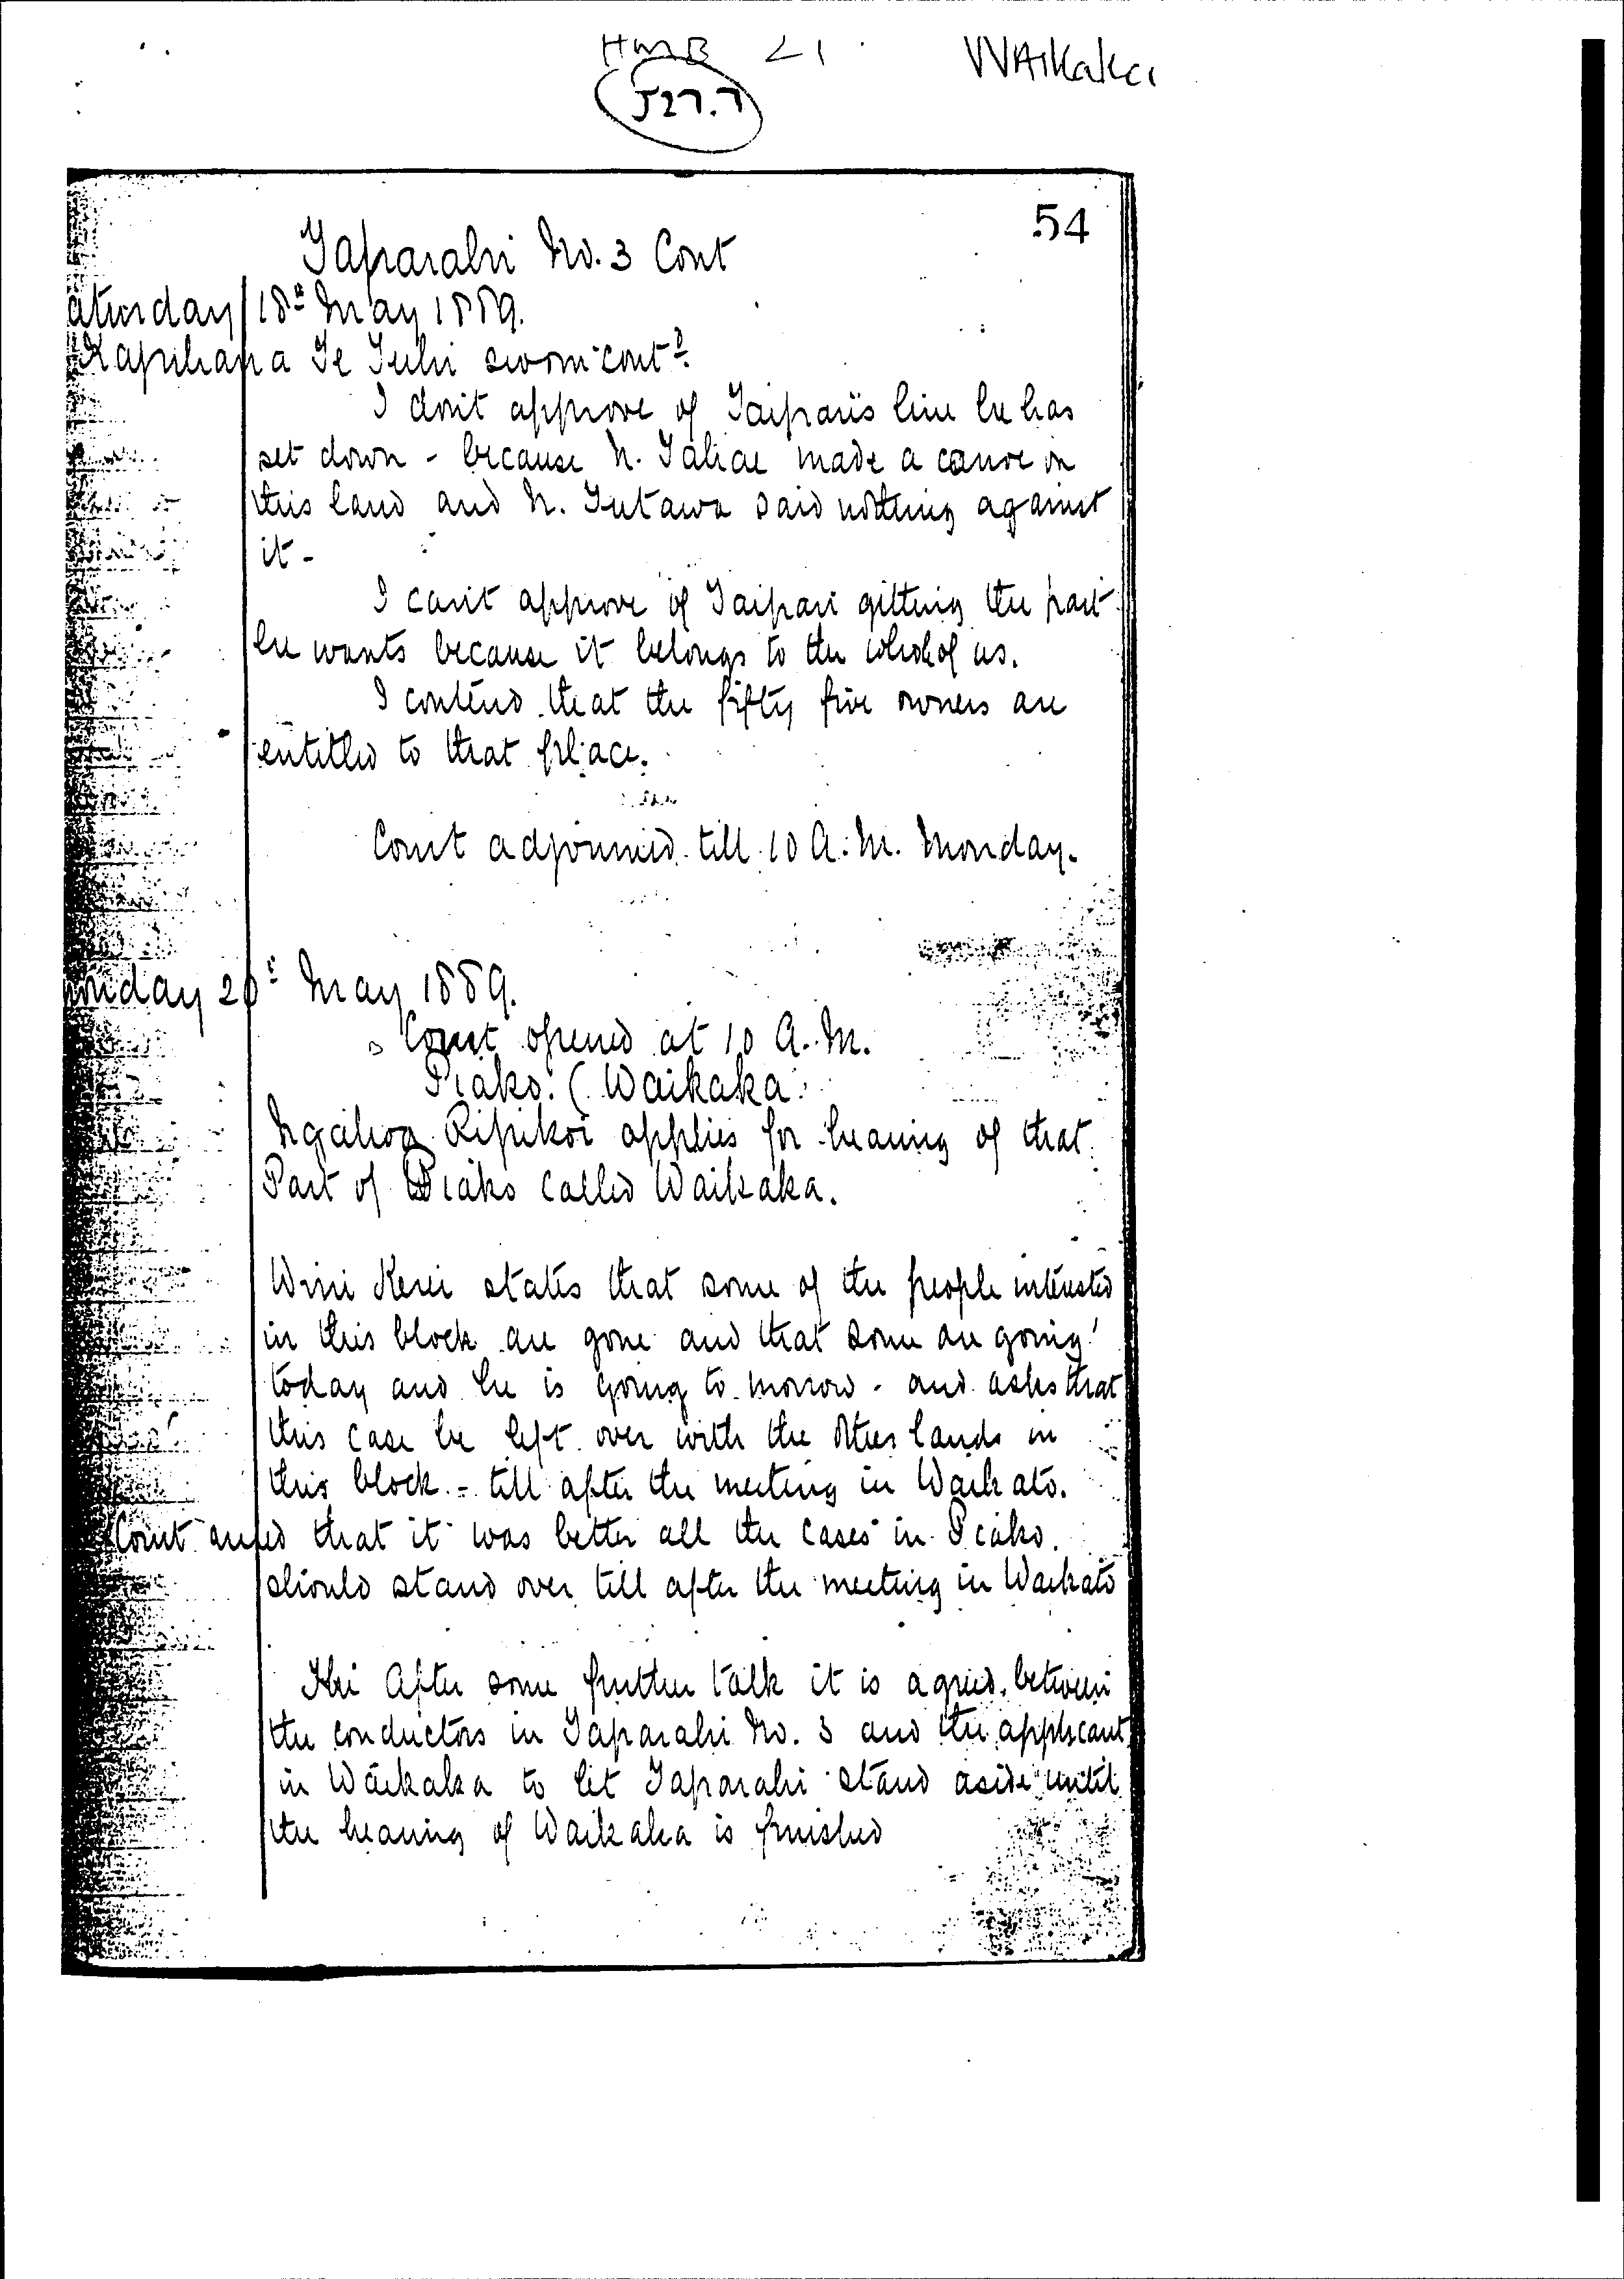 HMB 21 Waikaka
J27.7
54
Taparahi No. 3 Cont
aturday 18th May 1889.
Kapihana Te Tuhi sworn contd.
I don't approve of Taipari's line he has
set down - because N. Tahae made a canoe on
this land and N. Tutawa said nothing against
it -
I can't approve of Taipari getting the part
he wants because it belongs to the whole of us.
I contend that the fifty five owners are
entitled to that place.
Court adjourned till 10 A.M. Monday.
onday 20th May 1889.
Court opened at 10 A.M.
Piako. (Waikaka
Ngahoa Ripikoi applies for hearing of that
Part of Piako called Waikaka.
Wini Kerei states that some of the people interested
in this block are gone and that some are going
today and he is going to morrow - and asks that
this case be left over with the other lands in
this block - till after the meeting in Waikato.
Court that it was better all the cases in Piako.
should stand over till after the meeting in Waikato
After some further talk it is agreed between
the conductors in Taparahi No. 3 and the applicant
in Waikaka to let Taparahi stand aside until
the hearing of Waikaka is finished